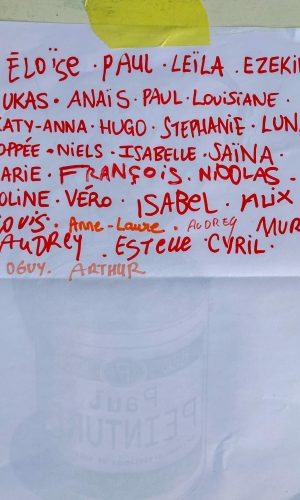 ÉLOÏSE · PAUL · LEÏLA · EZEKI
UKAS · ANAÏS · PAUL · LOUISIANE ·
KATY-ANNA · HUGO · STEPHANIE · LUN
OPPÉE · NIELS · ISABELLE · SAÏNA ·
ARIE · FRANÇOIS · NICOLAS ·
OLINE · VÉRO · ISABEL · ALIX
OUIS · Anne-Laure · AUDREY MUR
AUDREY · ESTELLE · CYRIL ·
OGUY · ARTHUR
Paul
PEINTUR